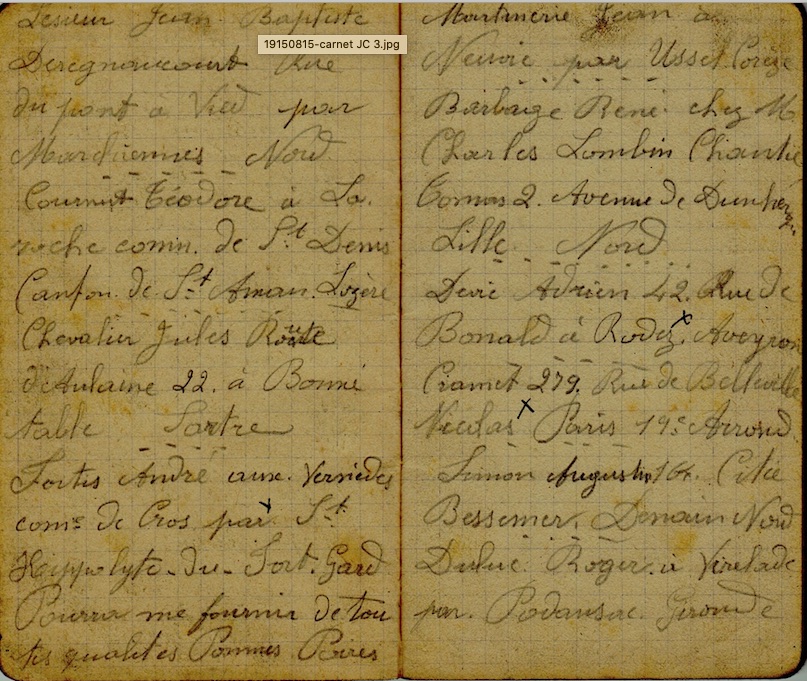 Lesieur Jean Baptiste
19150815-carnet JC 3.jpg
Deregnaucourt Rue
du pont à Vred par
Marchiennes Nord
Courrut Téodore à La
roche comn. de St Denis
Canton de St Aman. Lozère
Chevalier Jules Route
d'Aulaine 22. à Bonné
table Sartre
Fortis André aux. Verniedes
come de Cros par St
Hippolyte-du-Fort. Gard
Pourra me fournir de tou
tes qualites Pommes Poires
Martinerie Jean à
Neuvic par Ussel Corèze
Barbaize René chez M.
Charles Lombin Chantié
Tomas 2. Avenue de Dunkerque
Lille Nord
Devic Adrien 42. Rue de
Bonald à Rodez. Aveyron
Cramet 279. Rue de Belleville
Nicolas Paris 19e Arrond.
Simon Augustin 164. Cité
Bessemer. Denain Nord
Duluc Roger. à Virelade
par. Podansac. Gironde